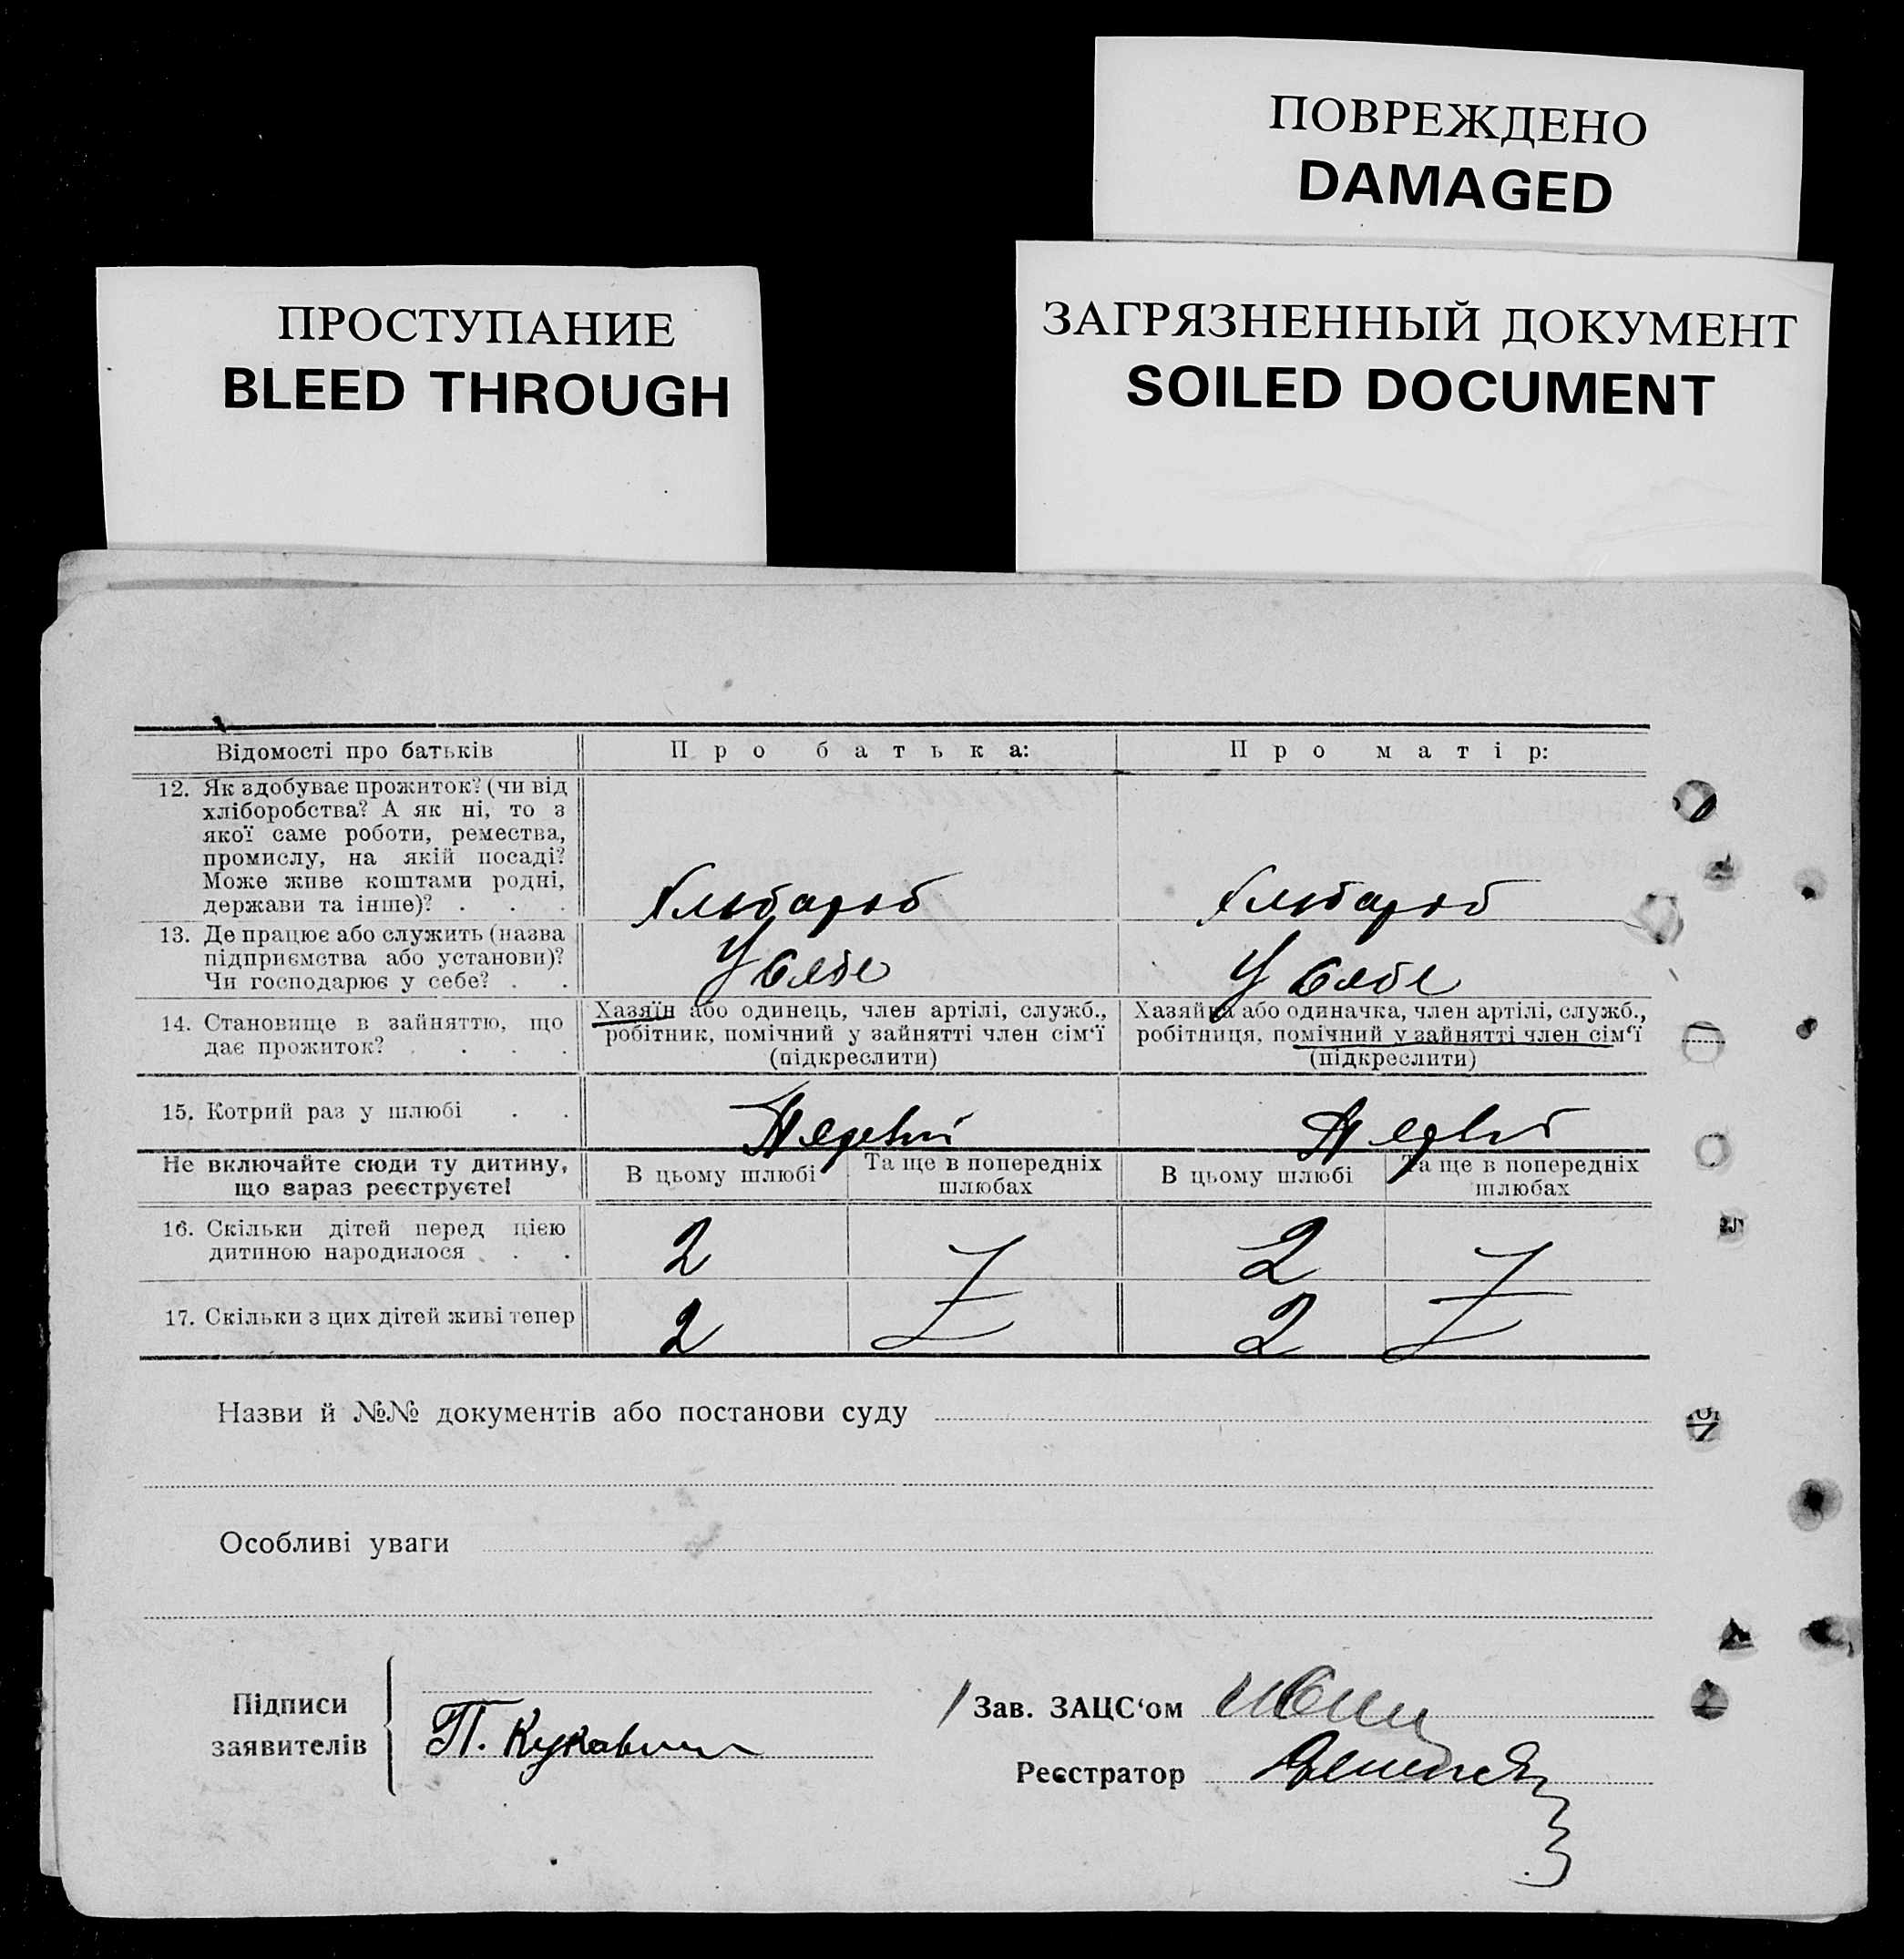 ПОВРЕЖДЕНО
DAMAGED
ПРОСТУПАНИЕ
BLEED THROUGH
ЗАГРЯЗНЕННЫЙ ДОКУМЕНТ
SOILED DOCUMENT
Відомості про батьків Про батька: Про матір:
12. Як здобуває прожиток? (чи від
хліборобства? А як ні, то з
якої саме роботи, ремества,
промислу, на якій посаді?
Може живе коштами родні,
держави та інше)? . . .
Хлібароб Хлібароб
13. Де працює або служить (назва
підприємства або установи)?
Чи господарює у себе? . .
У себе У себе
14. Становище в зайняттю, що
дає прожиток? . . . .
Хазяїн або одинець, член артілі, служб.,
робітник, помічний у зайнятті член сім'ї
(підкреслити)
Хазяйка або одиначка, член артілі, служб.,
робітниця, помічний у зайнятті член сім'ї
(підкреслити)
15. Котрий раз у шлюбі . .
Не включайте сюди ту дитину,
що зараз реєструєте!
В цьому шлюбі Та ще в попередніх
шлюбах
В цьому шлюбі Та ще в попередніх
шлюбах
16. Скільки дітей перед цією
дитиною народилося . .
2 2
17. Скільки з цих дітей живі тепер 2 2
Назви й №№ документів або постанови суду
Особливі уваги
Підписи
заявителів
П.
Зав. ЗАЦС'ом
Реєстратор